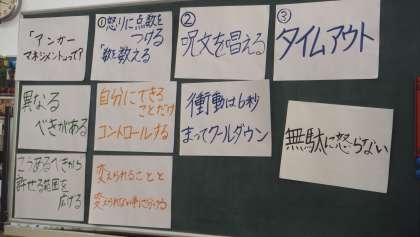 「アンガー
マネジメントって?
①怒りに点数を
つける
数を数える
②
呪文を唱える
③
タイムアウト
異なる
べきがある
自分にできる
ことだけ
コントロールする
衝動は6秒
まってクールダウン
無駄に怒らない
こうあるべきから
許せる範囲を
広げる
変えられることと
変えられない事に分ける